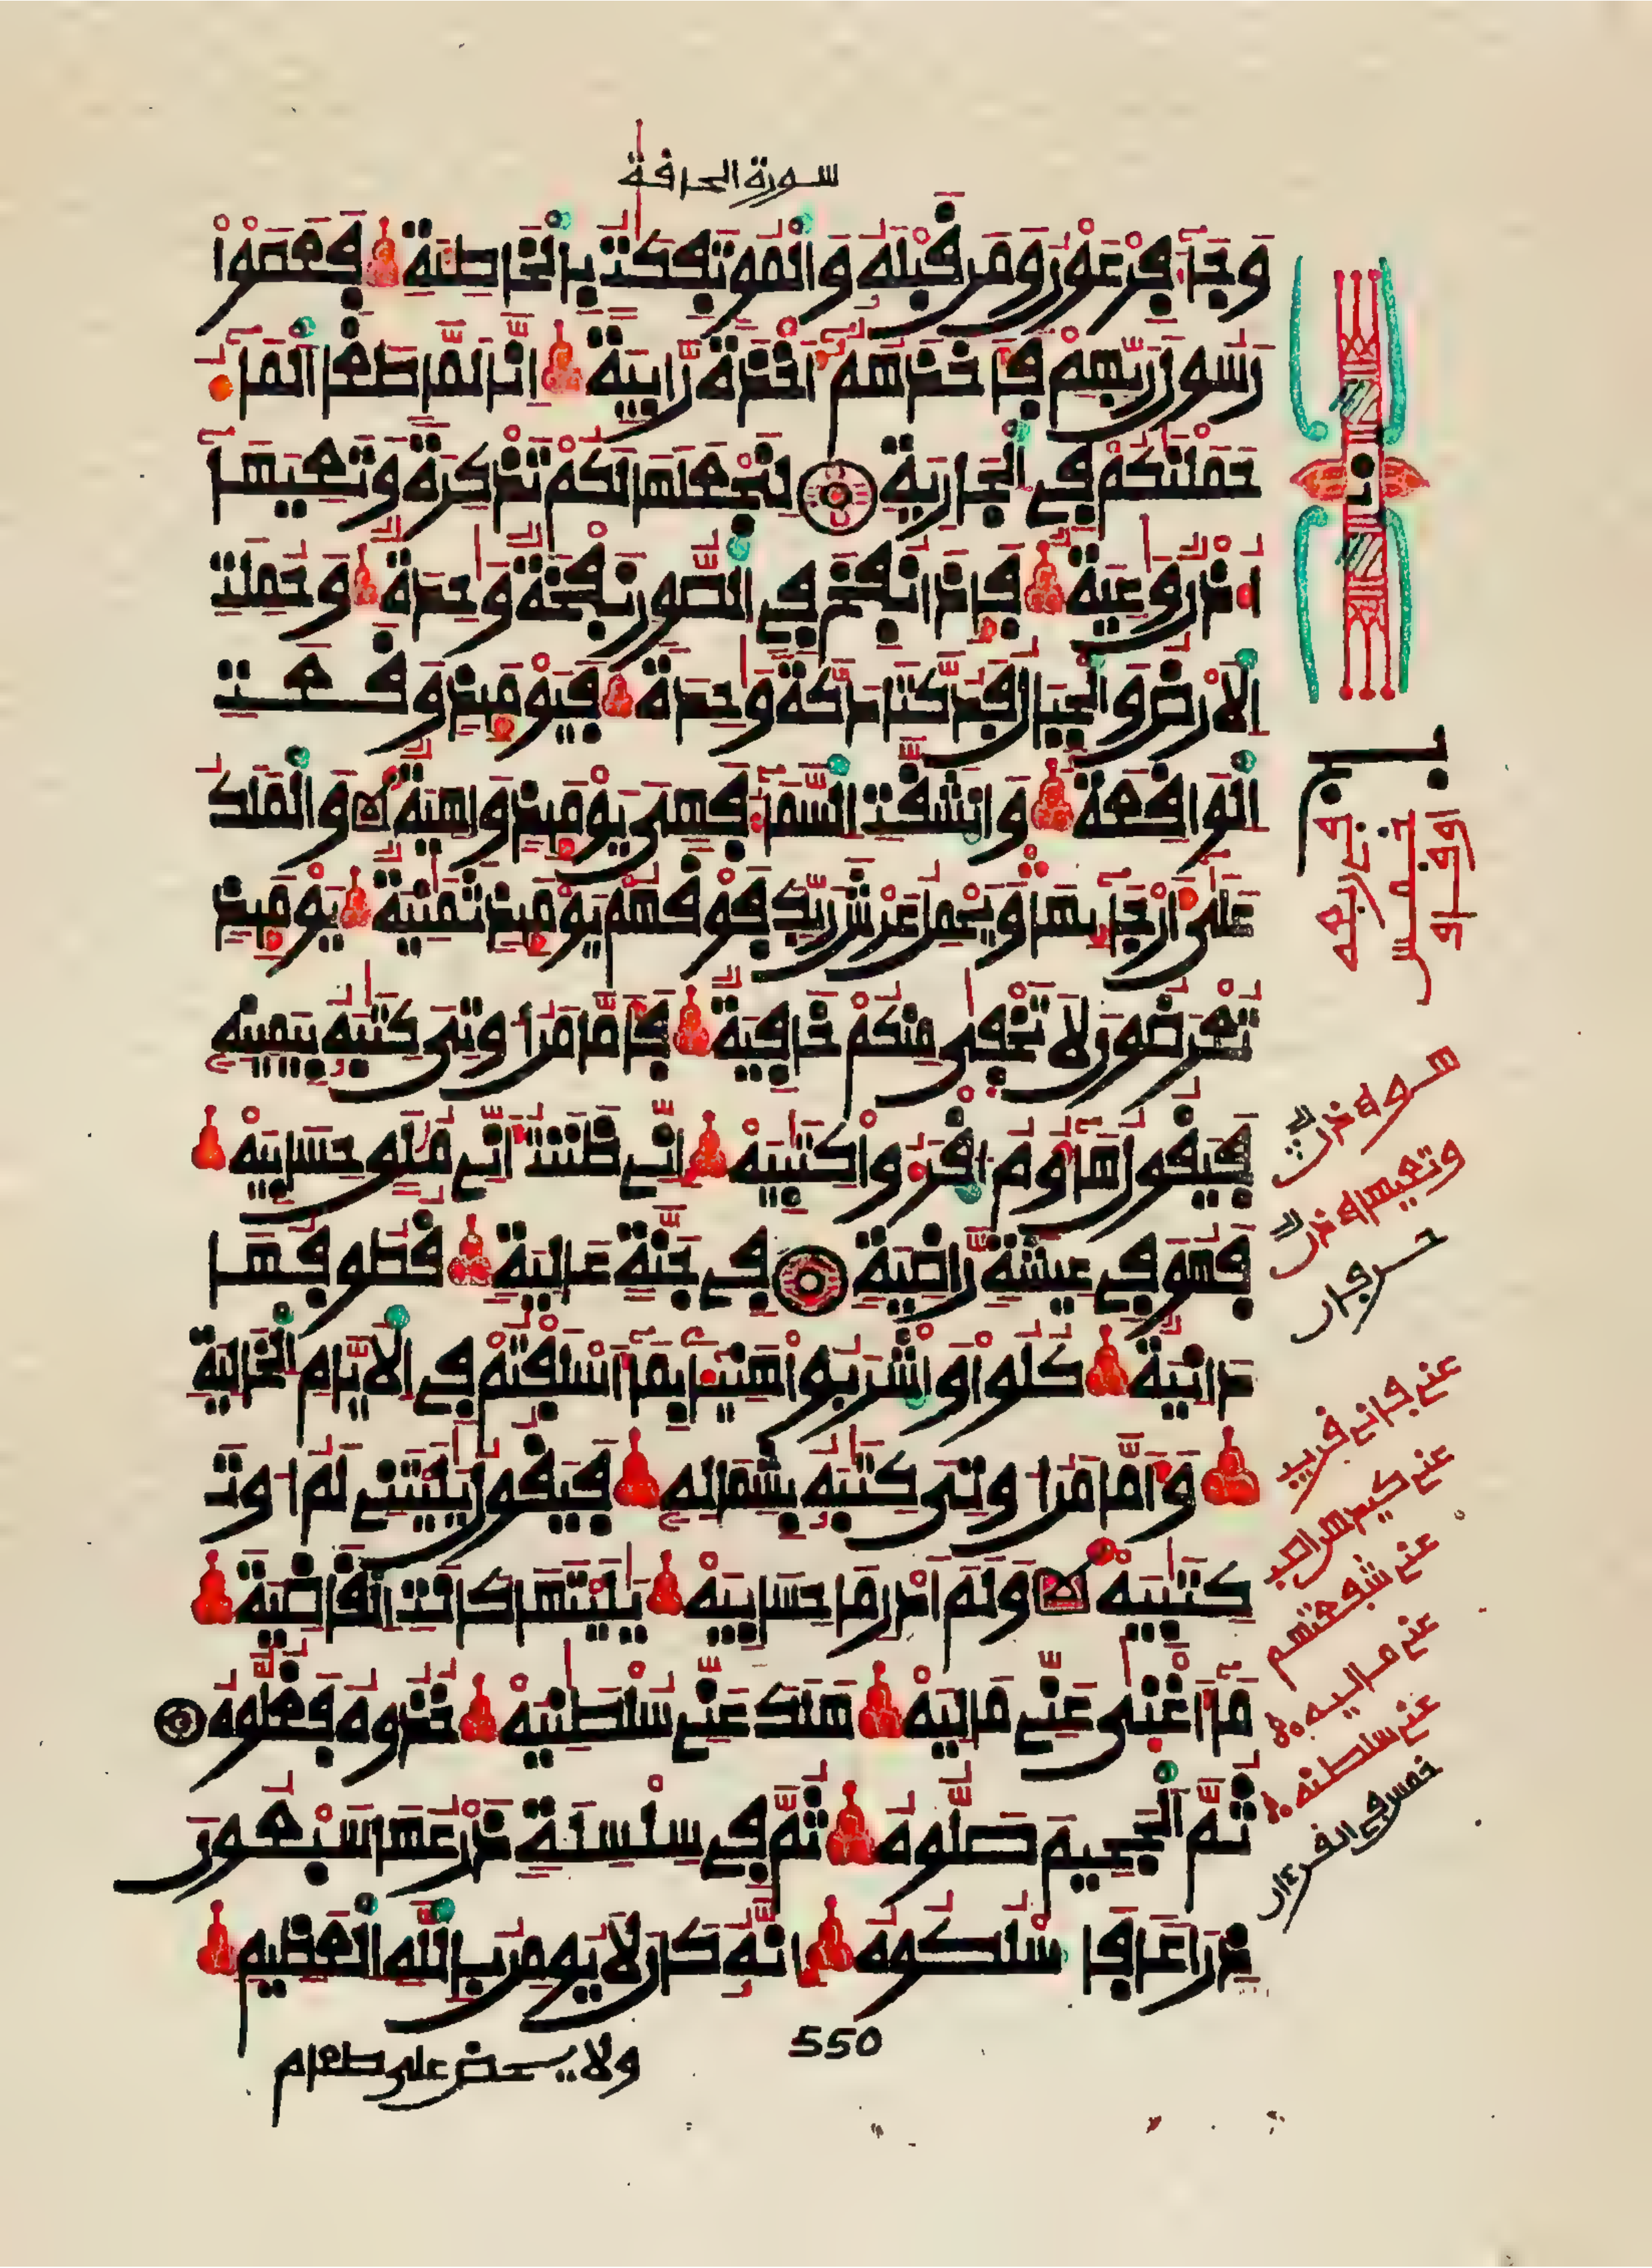 سورة الحاقة
وَجَآءَ فِرْعَوْنُ وَمَن قَبْلَهُۥ وَالْمُوتَفِكَٰتُ بِالْخَاطِئَةِ فَعَصَوْاْ
رَسُولَ رَبِّهِمْ فَأَخَذَهُمُۥٓ أَخْذَةً رَّابِيَةً إِنَّا لَمَّا طَغَا اَلْمَآءُ
حَمَلْنَٰكُمْ فِى اِلْجَارِيَةِ لِنَجْعَلَهَا لَكُمْ تَذْكِرَةً وَتَعِيَهَآ
أُذْنٌ وَٰعِيَةٌ فَإِذَا نُفِخَ فِى اِلصُّورِ نَفْخَةٌ وَٰحِدَةٌ وَحُمِلَتِ
اِلَارْضُ وَالْجِبَالُ فَدُكَّتَا دَكَّةً وَٰحِدَةً فَيَوْمَئِذٍ وَقَعَتِ
اِلْوَاقِعَةُ وَانشَقَّتِ اِلسَّمَآءُ فَهِىَ يَوْمَئِذٍ وَاهِيَةٌ وَالْمَلَكُ
عَلَىٰٓ أَرْجَآئِهَا وَيَحْمِلُ عَرْشَ رَبِّكَ فَوْقَهُمْ يَوْمَئِذٍ ثَمَٰنِيَةٌ يَوْمَئِذٍ
تُعْرَضُونَ لَا تَخْفَىٰ مِنكُمْ خَافِيَةٌ فَأَمَّا مَنُ اوتِىَ كِتَٰبَهُۥ بِيَمِينِهِۦ
فَيَقُولُ هَآؤُمُ اُقْرَءُواْ كِتَٰبِيَهْ إِنِّى ظَنَنتُ أَنِّى مُلَٰقٍ حِسَابِيَهْ
فَهُوَ فِى عِيشَةٍ رَّاضِيَةٍ فِى جَنَّةٍ عَالِيَةٍ قُطُوفُهَا
دَانِيَةٌ كُلُواْ وَاشْرَبُواْ هَنِيٓـًٔا بِمَآ أَسْلَفْتُمْ فِى اِلَايَّامِ اِلْخَالِيَةِ
وَأَمَّا مَنُ اوتِىَ كِتَٰبَهُۥ بِشِمَالِهِۦ فَيَقُولُ يَٰلَيْتَنِى لَمُ اوتَ
كِتَٰبِيَهْ وَلَمَ اَدْرِ مَا حِسَابِيَهْ يَٰلَيْتَهَا كَانَتِ اِلْقَاضِيَةَ
مَآ أَغْنَىٰ عَنِّى مَالِيَهْ هَلَكَ عَنِّى سُلْطَٰنِيَهْ خُذُوهُ فَغُلُّوهُ
ثُمَّ اَلْجَحِيمَ صَلُّوهُ ثُمَّ فِى سِلْسِلَةٍ ذَرْعُهَا سَبْعُونَ
ذِرَاعًا فَاسْلُكُوهُ إِنَّهُۥ كَانَ لَا يُومِنُ بِاللَّهِ اِلْعَظِيمِ
550
ولا يحض على طعام